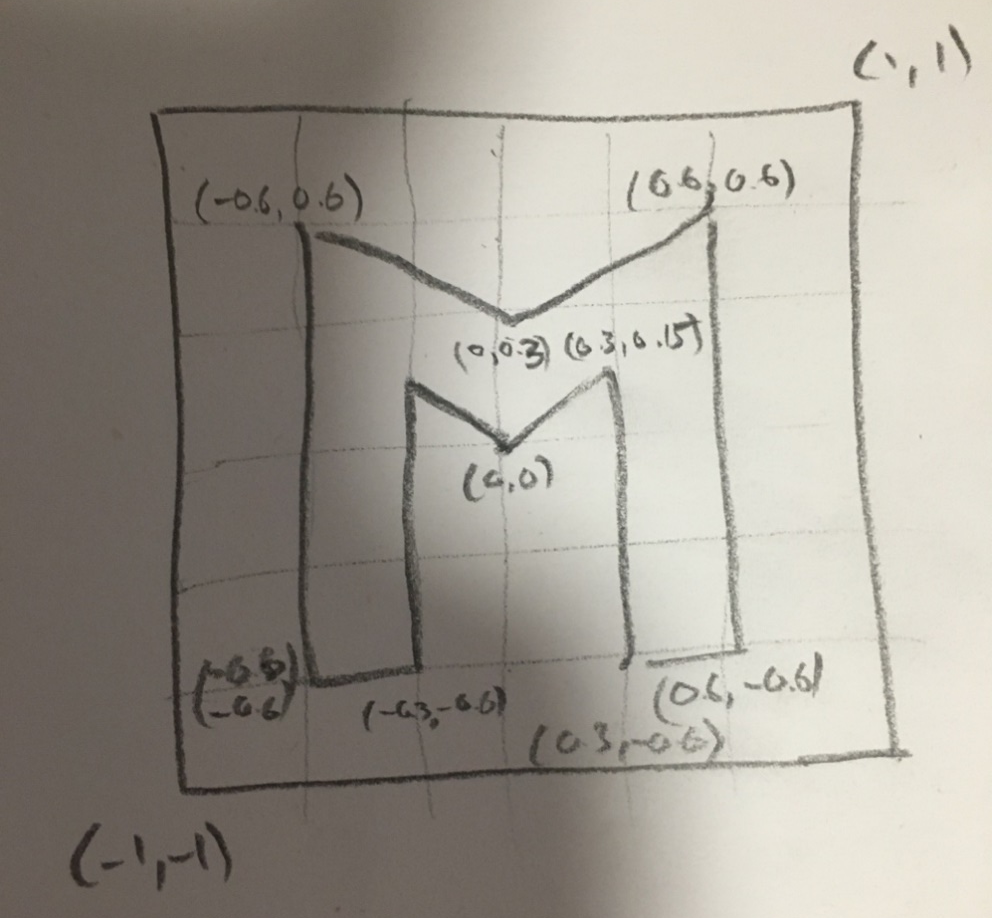 (1,1)
(-0.6, 0.6) (0.6, 0.6)
(0,0.3) (0.3, 0.15)
(0,0)
(-0.6,
-0.6)
(-0.3,-0.6) (0.6, -0.6)
(0.3,-0.6)
(-1,-1)